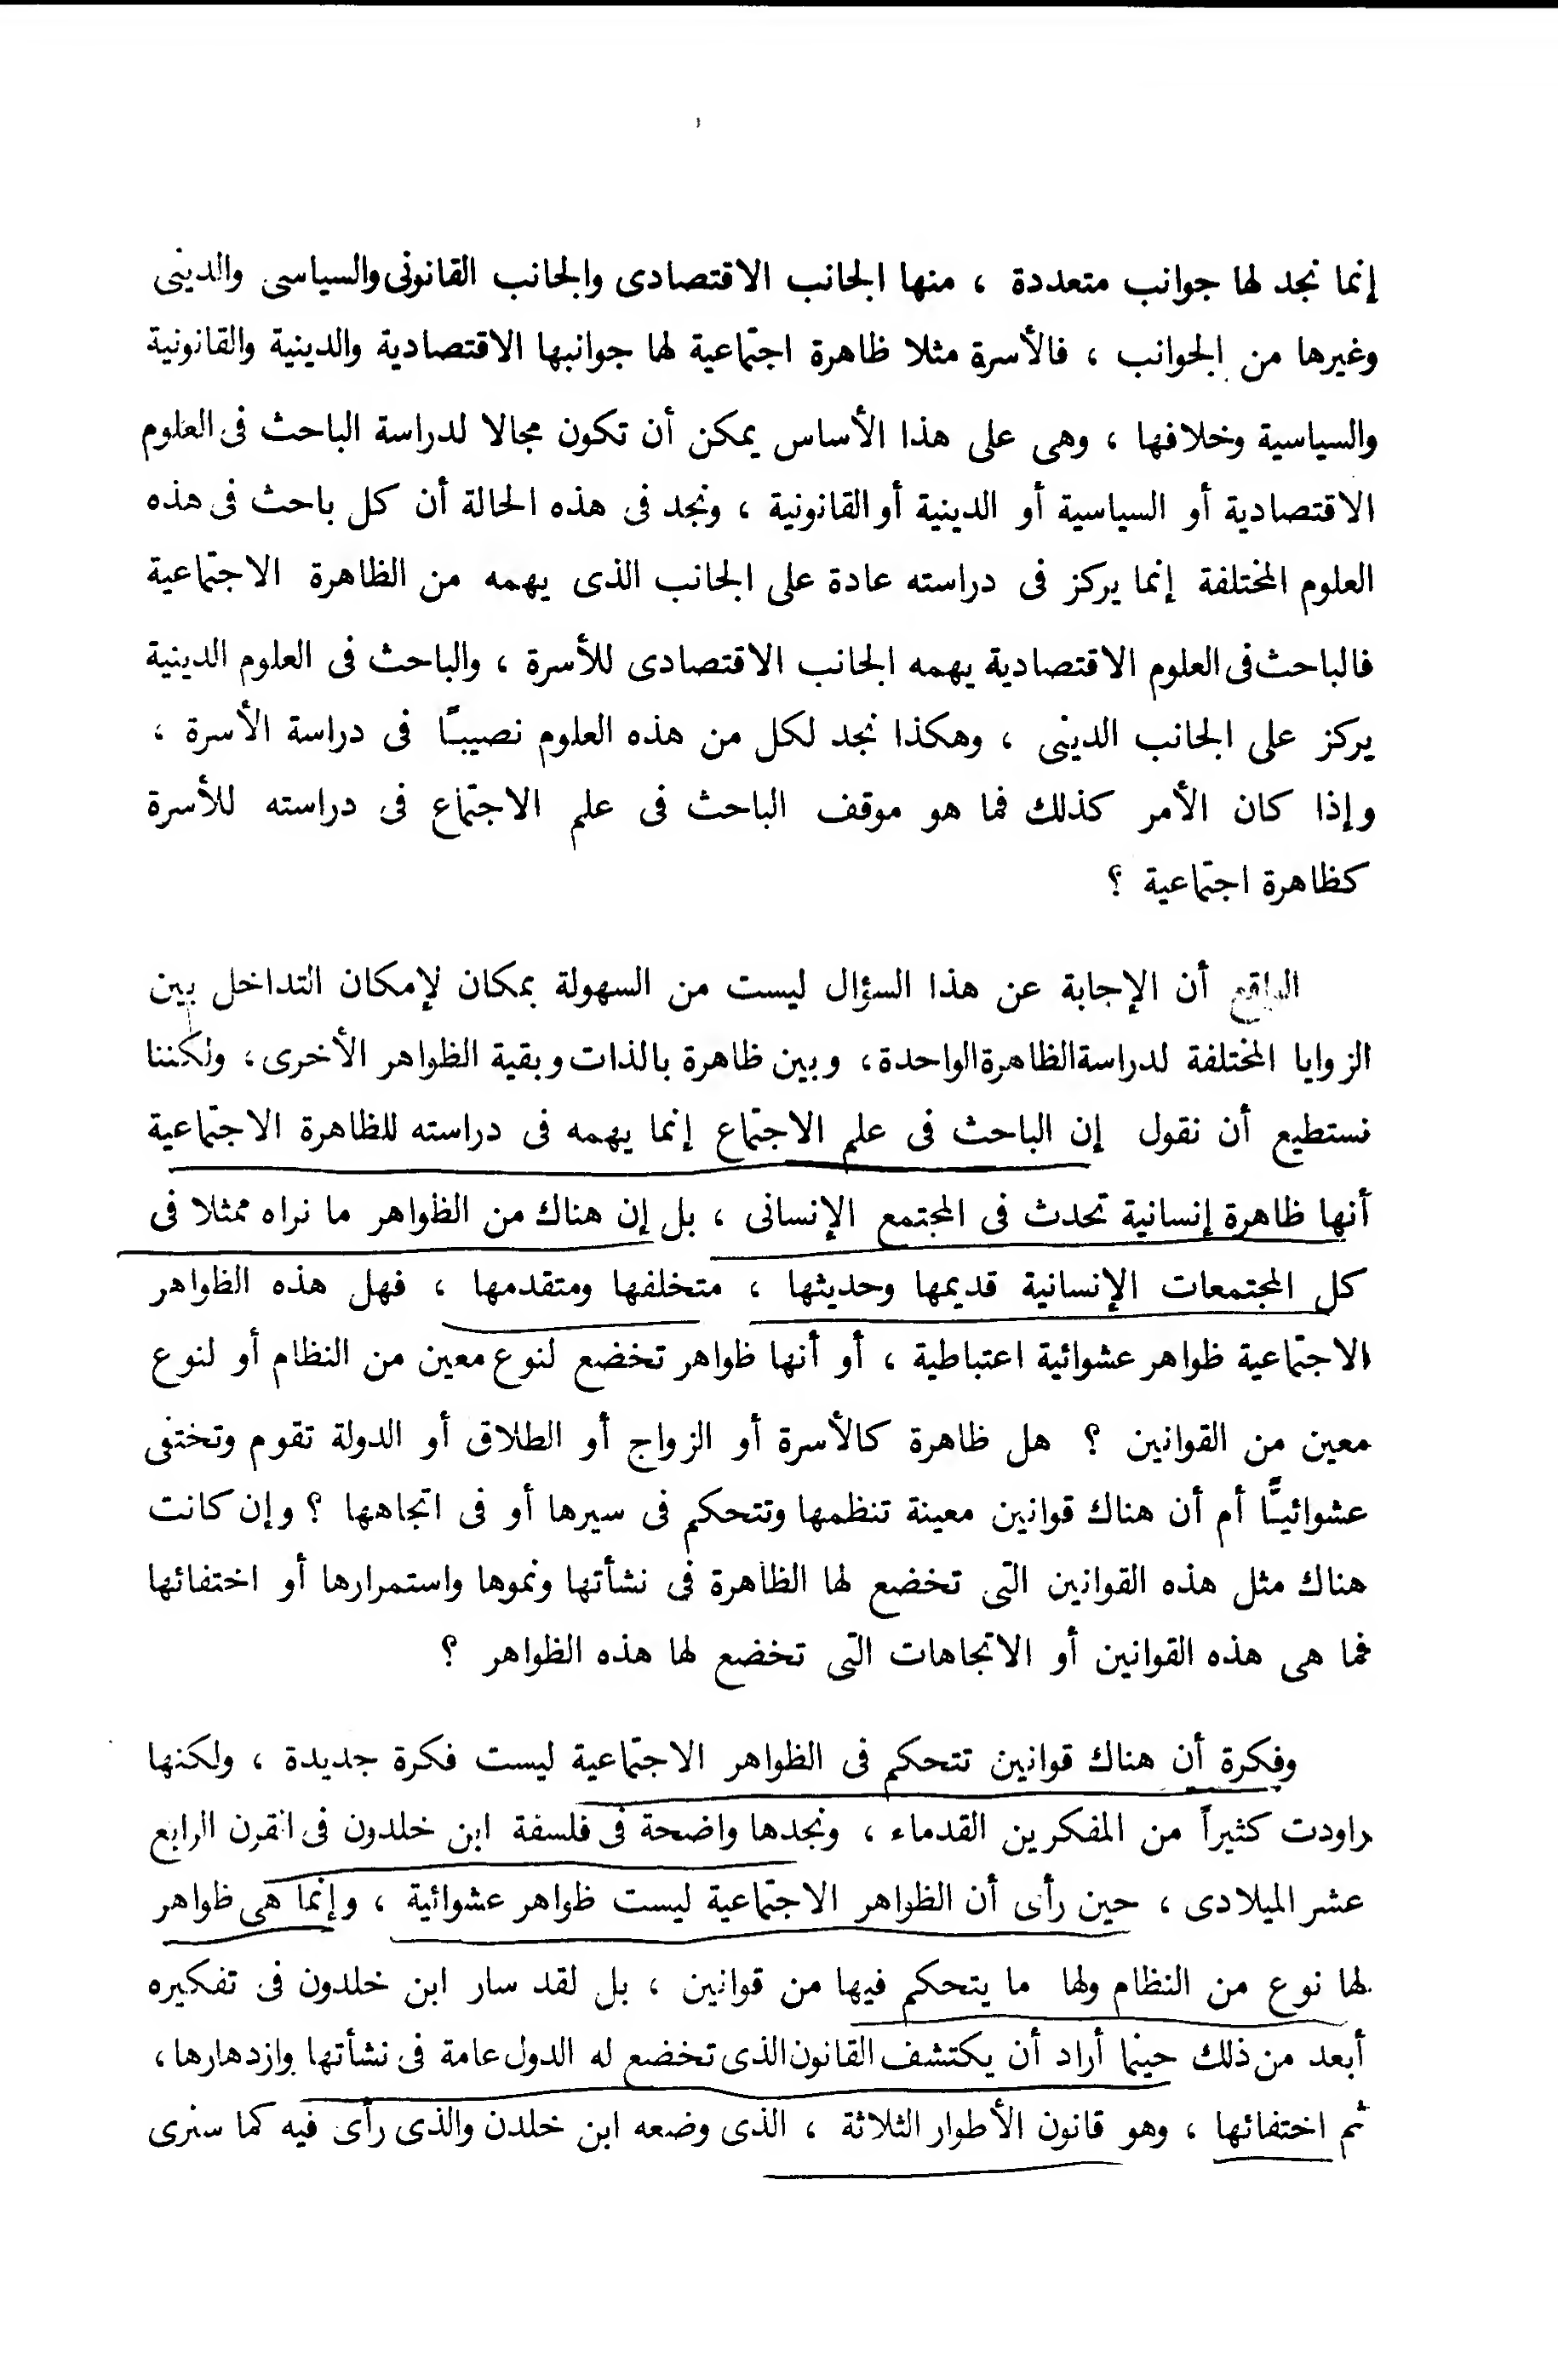 إنما نجد لها جوانب متعددة ، منها الجانب الاقتصادى والجانب القانونى والسياسى والدينى
وغيرها من الجوانب ، فالأسرة مثلا ظاهرة اجتماعية لها جوانبها الاقتصادية والدينية والقانونية
والسياسية وخلافها ، وهى على هذا الأساس يمكن أن تكون مجالا لدراسة الباحث فى العلوم
الاقتصادية أو السياسية أو الدينية أو القانونية ، ونجد فى هذه الحالة أن كل باحث فى هذه
العلوم المختلفة إنما يركز فى دراسته عادة على الجانب الذى يهمه من الظاهرة الاجتماعية
فالباحث فى العلوم الاقتصادية يهمه الجانب الاقتصادى للأسرة ، والباحث فى العلوم الدينية
يركز على الجانب الدينى ، وهكذا نجد لكل من هذه العلوم نصيبًا فى دراسة الأسرة ،
وإذا كان الأمر كذلك فما هو موقف الباحث فى علم الاجتماع فى دراسته للأسرة
كظاهرة اجتماعية ؟
الواقع أن الإجابة عن هذا السؤال ليست من السهولة بمكان لإمكان التداخل بين
الزوايا المختلفة لدراسة الظاهرة الواحدة ، وبين ظاهرة بالذات وبقية الظواهر الأخرى ، ولكننا
نستطيع أن نقول إن الباحث فى علم الاجتماع إنما يهمه فى دراسته للظاهرة الاجتماعية
أنها ظاهرة إنسانية تحدث فى المجتمع الإنسانى ، بل إن هناك من الظواهر ما نراه ممثلا فى
كل المجتمعات الإنسانية قديمها وحديثها ، متخلفها ومتقدمها ، فهل هذه الظواهر
الاجتماعية ظواهر عشوائية اعتباطية ، أو أنها ظواهر تخضع لنوع معين من النظام أو لنوع
معين من القوانين ؟ هل ظاهرة كالأسرة أو الزواج أو الطلاق أو الدولة تقوم وتختفى
عشوائيًّا أم أن هناك قوانين معينة تنظمها وتتحكم فى سيرها أو فى اتجاهها ؟ وإن كانت
هناك مثل هذه القوانين التى تخضع لها الظاهرة فى نشأتها ونموها واستمرارها أو اختفائها
فما هى هذه القوانين أو الاتجاهات التى تخضع لها هذه الظواهر ؟
وفكرة أن هناك قوانين تتحكم فى الظواهر الاجتماعية ليست فكرة جديدة ، ولكنها
راودت كثيراً من المفكرين القدماء ، ونجدها واضحة فى فلسفة ابن خلدون فى القرن الرابع
عشر الميلادى ، حين رأى أن الظواهر الاجتماعية ليست ظواهر عشوائية ، وإنما هى ظواهر
لها نوع من النظام ولها ما يتحكم فيها من قوانين ، بل لقد سار ابن خلدون فى تفكيره
أبعد من ذلك حينما أراد أن يكتشف القانون الذى تخضع له الدول عامة فى نشأتها وازدهارها ،
ثم اختفائها ، وهو قانون الأطوار الثلاثة ، الذى وضعه ابن خلدن والذى رأى فيه كما سنرى